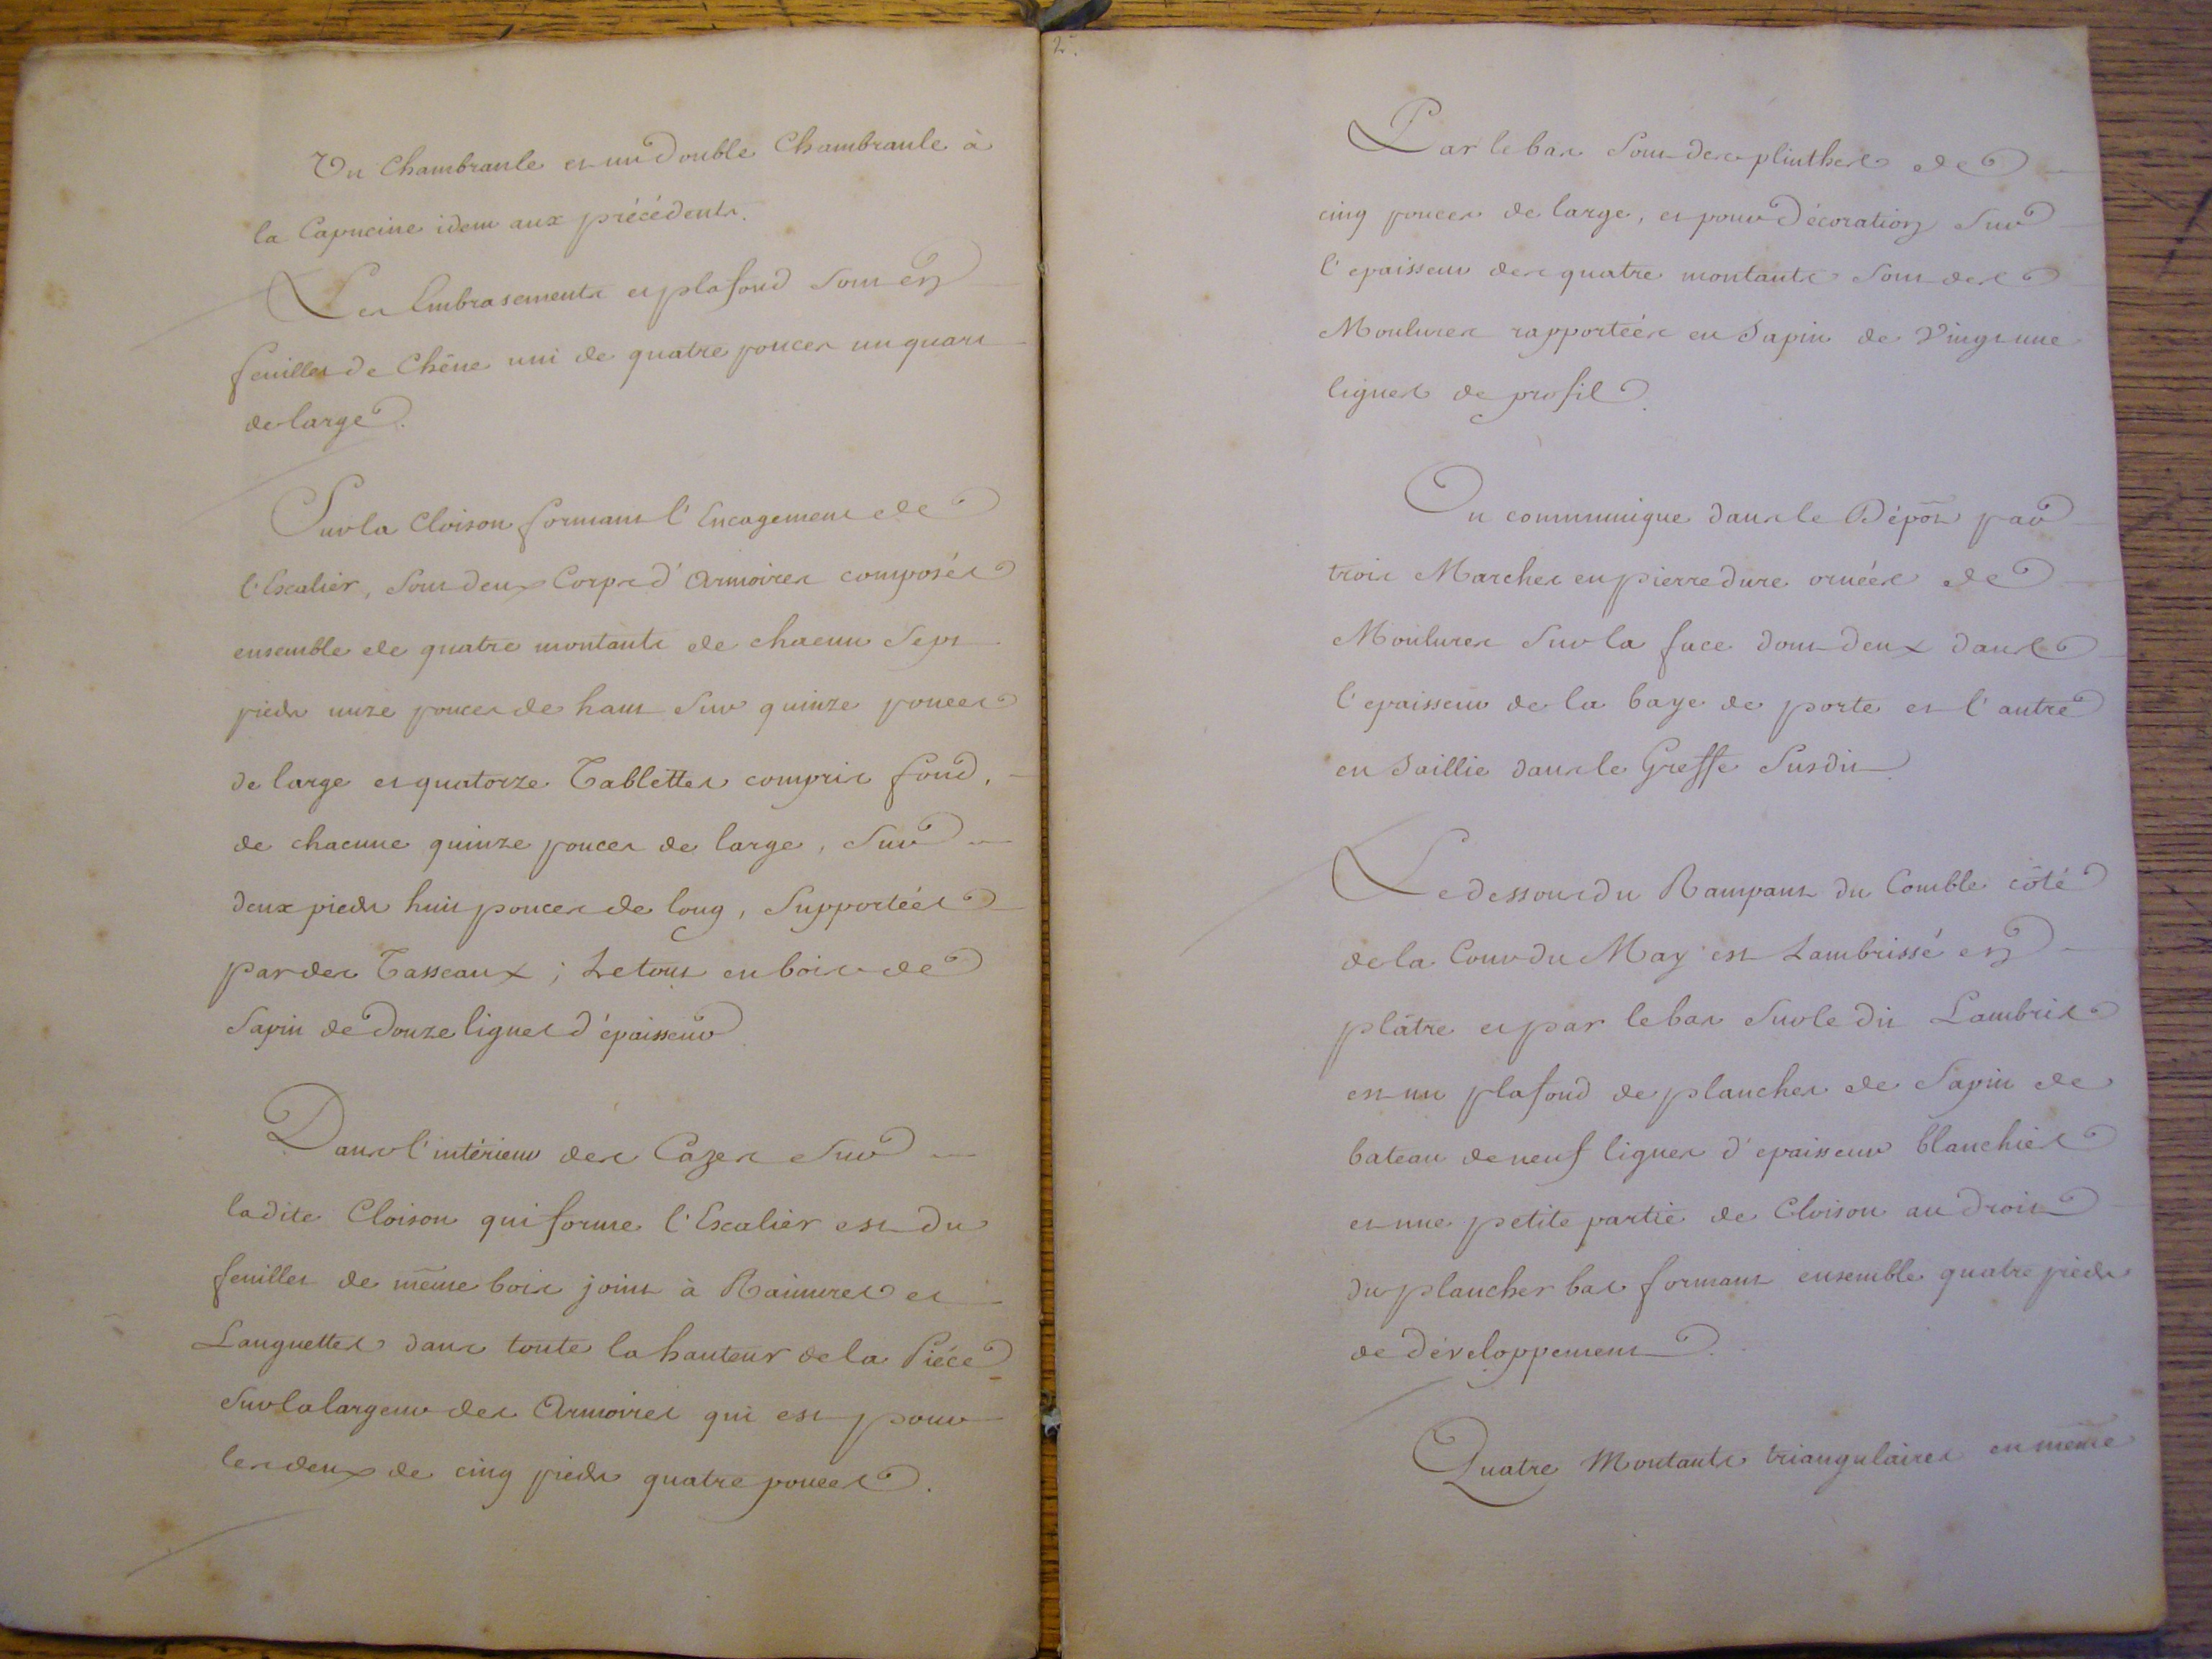 Un Chambranle et un double Chambranle à
la Capucine idem aux précédents.
Les Embrasements et plafond sont en
feuilles de Chêne uni de quatre pouces un quart
de large.
Sur la Cloison formant l'Encagement de
l'Escalier, sont deux Corps d'Armoires composés
ensemble de quatre montants de chacun sept
pieds unze pouces de haut sur quinze pouces
de large et quatorze Tablettes compris fond,
de chacune quinze pouces de large, sur
deux pieds huit pouces de long, Supportées
par des Tasseaux ; Le tout en bois de
Sapin de douze lignes d'épaisseur
Dans l'intérieur des Cazes sur
ladite Cloison qui forme l'Escalier est du
feuillet de même bois joint à Rainures et
Languettes dans toute la hauteur de la Piéce
Sur la largeur des Armoires qui est pour
les deux de cinq pieds quatre pouces.
2.
Par le bas sont des plinthes de
cinq pouces de large, et pour décoration sur
l'epaisseur des quatre montants sont des
Moulures rapportées en Sapin de Vingt une
lignes de profil.
On communique dans le Dépôt par
trois Marches en pierre dure ornées de
Moulures sur la face dont deux dans
l'epaisseur de la baye de porte et l'autre
en Saillie dans le Greffe Susdit
Le dessous du Rampant du Comble côté
de la Cour du May est Lambrissé en
plâtre et par le bas sur le dit Lambris
est un plafond de planches de Sapin de
bateau de neuf lignes d'epaisseur blanchies
et une petite partie de Cloison au droit
du plancher bas formant ensemble quatre pieds
de développement.
Quatre Montants triangulaires en même